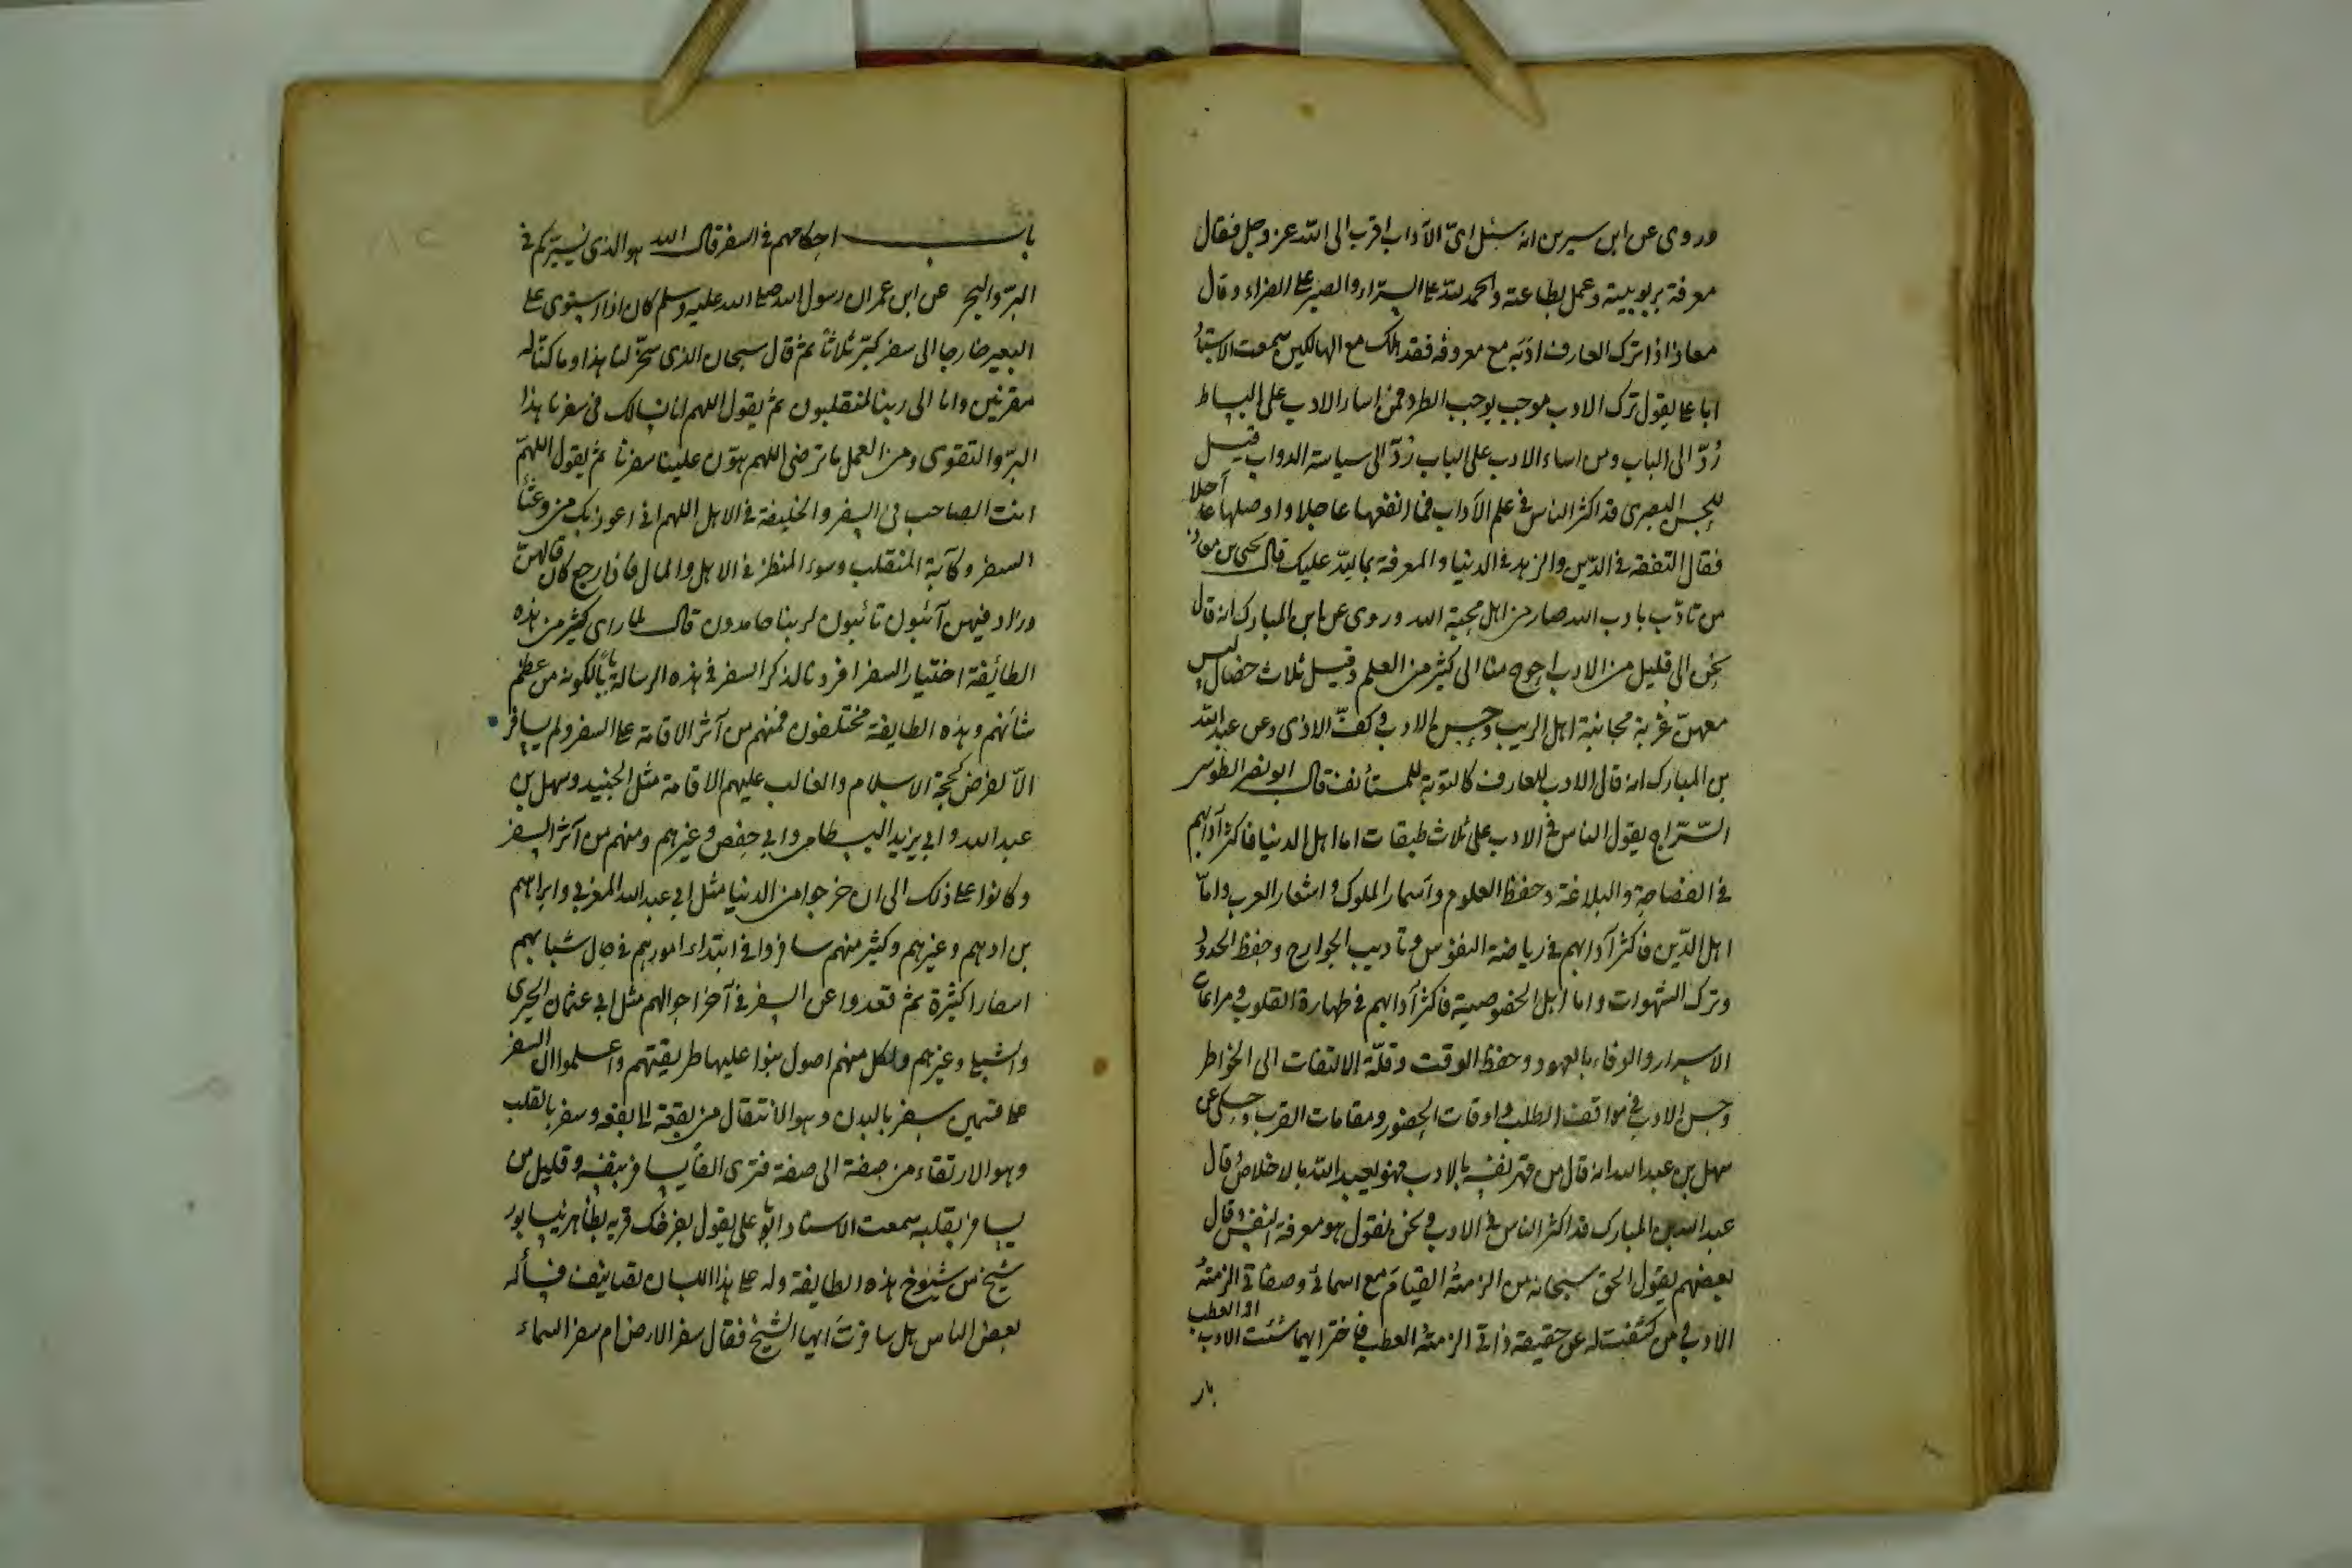 وروى عن ابن سيرين انه سئل اىّ الآداب اقرب الى الله عز وجل فقال
معرفة بربوبيته وعمل بطاعته والحمد لله على السرّاء والصبر على الضراء وقال
معاذ اذا ترك العارف ادبه مع معروفه فقد هلك مع الهالكين سمعت الاستاذ
ابا على يقول ترك الادب موجب يوجب الطرد فمن اساء الادب على البساط
رُدّ الى الباب ومن اساء الادب على الباب رُدّ الى سياسة الدواب قيل
للحسن البصرى قد اكثر الناس فى علم الآداب فما انفعها عاجلا واوصلها آجلا
فقال التفقه فى الدّين والزهد فى الدنيا والمعرفة بما لله عليك قال يحيى بن معاذ
من تأدّب بادب الله صار من اهل محبة الله وروى عن ابن المبارك انه قال
نحن الى قليل من الادب احوج منا الى كثير من العلم وقيل ثلاث خصال ليس
معهنّ غربة مجانبة اهل الريب وحسن الادب وكفّ الاذى وعن عبد الله
بن المبارك انه قال الادب للعارف كالتوبة للمستأنف قال ابو نصر الطوسى
السّرّاج يقول الناس فى الادب على ثلاث طبقات اما اهل الدنيا فاكثر آدابهم
فى الفصاحة والبلاغة وحفظ العلوم واسمار الملوك واشعار العرب وامّا
اهل الدّين فاكثر آدابهم فى رياضة النفوس وتأديب الجوارح وحفظ الحدود
وترك الشهوات واما اهل الخصوصية فاكثر آدابهم فى طهارة القلوب ومراعات
الاسرار والوفاء بالعهود وحفظ الوقت وقلّة الالتفات الى الخواطر
وحسن الادب فى مواقف الطلب واوقات الحضور ومقامات القرب وحكى عن
سهل بن عبد الله انه قال من قهر نفسه بالادب فهو يعبد الله بالاخلاص وقال
عبد الله بن المبارك قد اكثر الناس فى الادب ونحن نقول هو معرفة النفس وقال
بعضهم يقول الحق سبحانه من الزمته القيام مع اسمائى وصفاتى الزمته
الادب ومن كشفت له عن حقيقة ذاتى الزمته العطب فاختر ايهما شئت الادب او العطب
باب
باب احكامهم فى السفر قال الله هو الذى يسيّركم فى
البرّ والبحر عن ابن عمر ان رسول الله صلى الله عليه وسلم كان اذا استوى على
البعير خارجا الى سفر كبّر ثلاثا ثم قال سبحان الذى سخّر لنا هذا وما كنّا له
مقرنين وانا الى ربنا لمنقلبون ثم يقول اللهم انا نسألك فى سفرنا هذا
البرّ والتقوى ومن العمل ما ترضى اللهم هوّن علينا سفرنا ثم يقول اللهمّ
انت الصاحب فى السفر والخليفة فى الاهل اللهم انى اعوذ بك من وعثاء
السفر وكآبة المنقلب وسوء المنظر فى الاهل والمال فاذا رجع كان قالهنّ
وزاد فيهن آئبون تائبون لربنا حامدون قال لما راى كثير من هذه
الطائفة اختيار السفر افردنا لذكر السفر فى هذه الرسالة بابا لكونه من عظم
شأنهم وهذه الطايفة مختلفون فمنهم من آثر الاقامة على السفر ولم يسافر
الّا لفرض كحجة الاسلام والغالب عليهم الاقامة مثل الجنيد وسهل بن
عبد الله وابى يزيد البسطامى وابى حفص وغيرهم ومنهم من آثر السفر
وكانوا على ذلك الى ان خرجوا من الدنيا مثل ابى عبد الله المغربى وابراهيم
بن ادهم وغيرهم وكثير منهم سافروا فى ابتداء امورهم فى حال شبابهم
اسفارا كثيرة ثم قعدوا عن السفر فى آخر احوالهم مثل ابى عثمان الحيرى
والشبلى وغيرهم ولكل منهم اصول بنوا عليها طريقتهم واعلموا ان السفر
على قسمين سفر بالبدن وهو الانتقال من بقعة الى بقعة وسفر بالقلب
وهو الارتقاء من صفة الى صفة فترى الفًا يسافر بنفسه وقليل من
يسافر بقلبه سمعت الاستاذ ابا على يقول بفرخك قرية بظاهر نيسابور
شيخ من شيوخ هذه الطايفة وله على هذا اللسان تصانيف فسأله
بعض الناس هل سافرت ايها الشيخ فقال سفر الارض ام سفر السماء